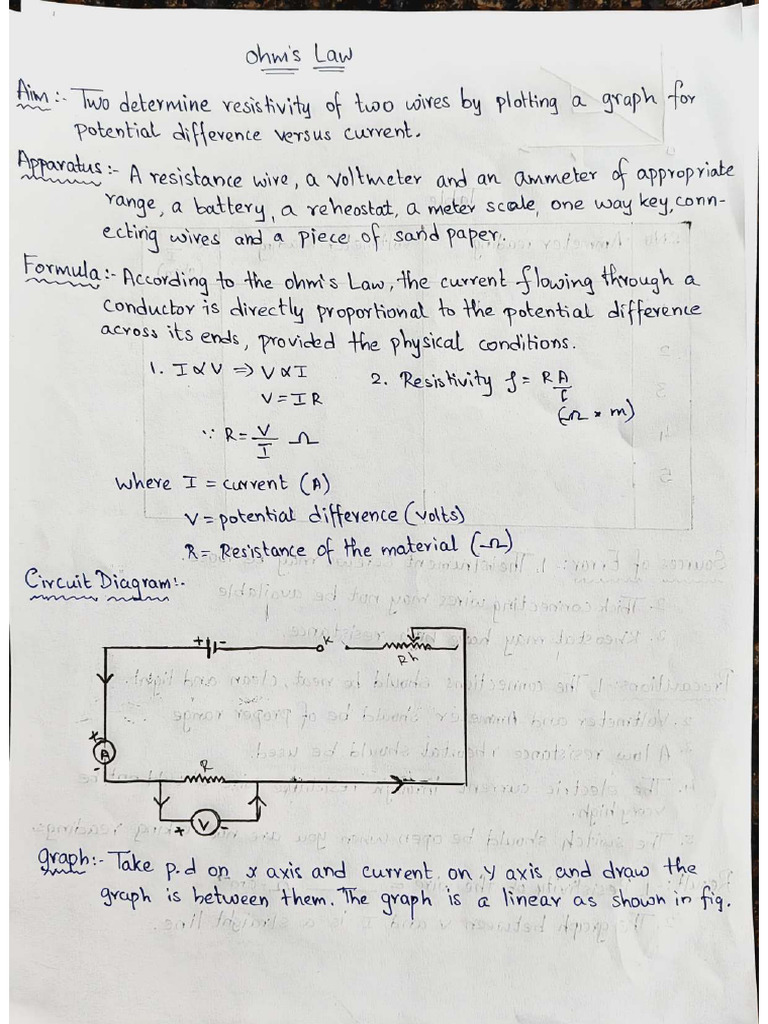 Ohm's Law
Aim:- Two determine resistivity of two wires by plotting a graph for
potential difference versus current.
Apparatus:- A resistance wire, a voltmeter and an ammeter of appropriate
range, a battery, a reheostat, a meter scale, one way key, conn-
ecting wires and a piece of sand paper.
Formula:- According to the ohm's Law, the current flowing through a
conductor is directly proportional to the potential difference
across its ends, provided the physical conditions.
1. I ∝ V ⇒ V ∝ I
V = I R
∵ R = V/I Ω
2. Resistivity ρ = R A/l
(Ω × m)
where I = current (A)
V = potential difference (volts)
R = Resistance of the material (Ω)
Circuit Diagram:-
+ -
K
Rh
+
A
-
R
+ V -
graph:- Take p.d on x axis and current on y axis and draw the
graph is between them. The graph is a linear as shown in fig.